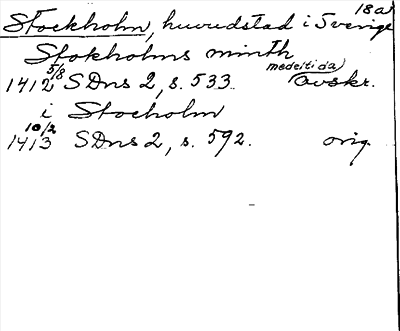 18a
Stockholm, huvudstad i Sverige
Stokholms minth
1412 5/8 SDns 2, s. 533. medeltida avskr.
i Stocholm
1413 10/2 SDns 2, s. 592. orig.